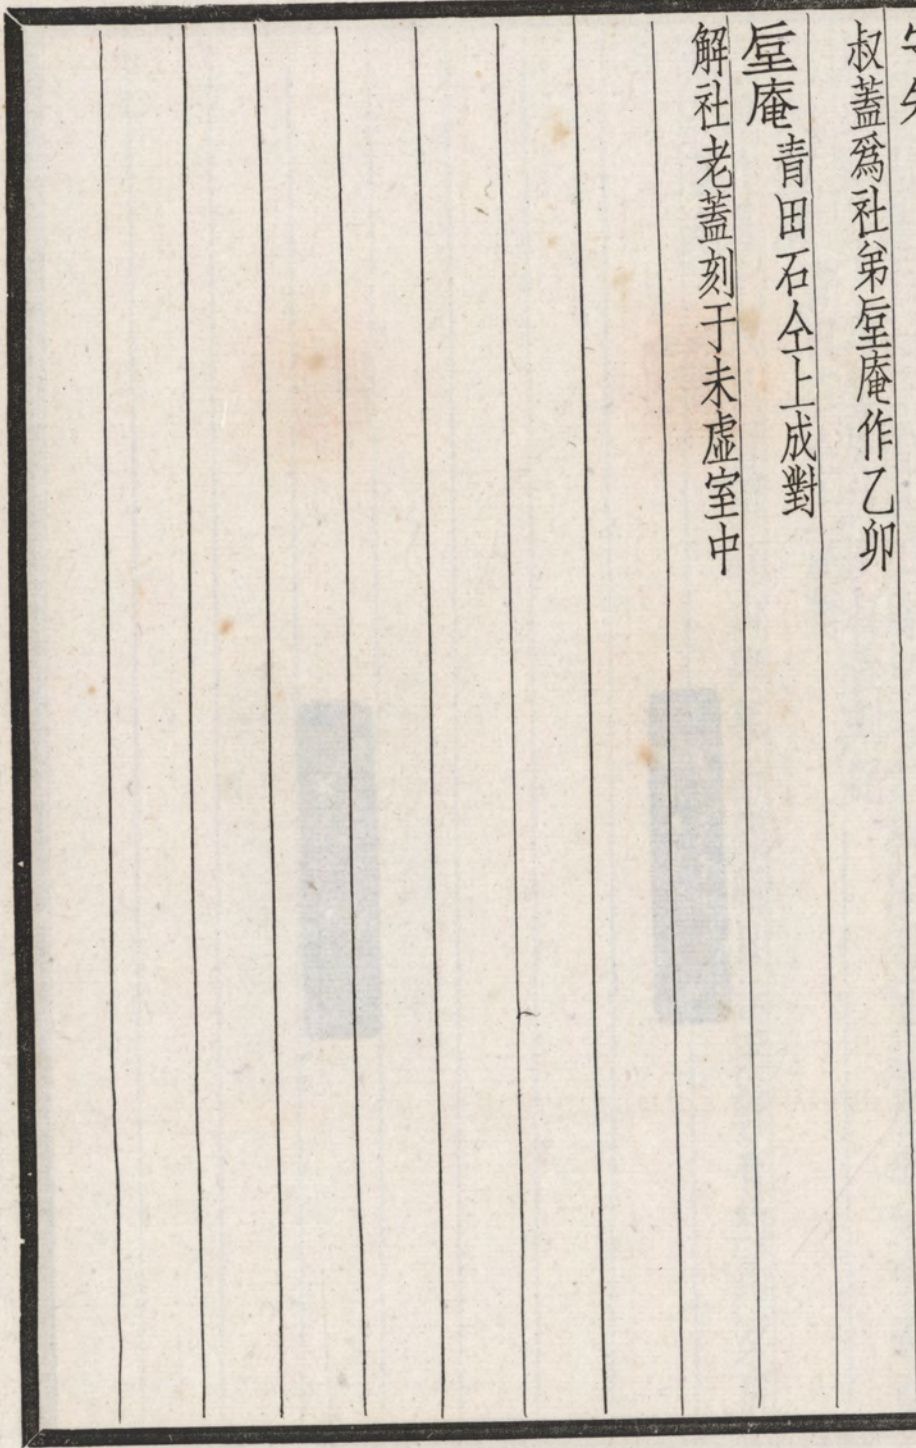 叔蓋爲社弟垕庵作乙卯
垕庵 青田石仝上成對
解社老蓋刻于未虛室中